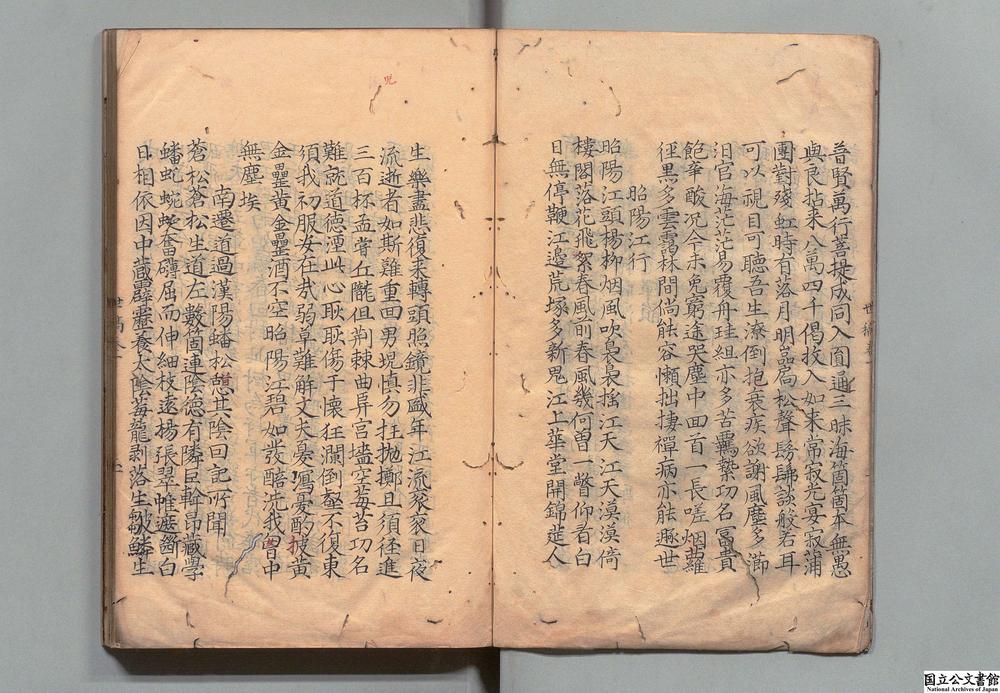 普賢萬行菩提成同入圓通三昧海箇箇本無愚
與良拈来八萬四千偈投入如来常寂光宴寂蒲
團對殘虹時有落月明品扃松聲髣髴談般若耳
可以視目可聽吾生潦倒抱衰疾欲謝風塵多濟
汨官海茫茫易覆舟珪組亦多苦羈縶功名冨貴
飽辛酸况今未免窮途哭塵中回首一長嗟烟蘿
徑黒多雲靄林間尚能容懶拙捿禪病亦能遯世
昭陽江行
昭陽江頭楊柳烟風吹裊裊揺江天江天漠漠倚
樓閣落花飛絮春風前春風幾何曽一瞥仰看白
日無停鞭江邉荒塚多新鬼江上華堂開錦莚人
生樂盡悲復来轉頭昭鏡非盛年江流衮衮日夜
流逝者如斯難重回男児慎勿狂抛擲且須徑進
三百杯孟嘗丘隴但荆棘曲房宮壒空莓苔功名
難就道德湮此心耿耿傷于懐狂瀾倒壑不復東
須我初服安在㢤弱草難解丈夫憂瀉憂酌披黄
金罍黄金罍酒不空昭陽江碧如發醅洗我胷中
無塵埃
南遷道過漢陽蟠松憩其陰回記所聞
蒼松蒼松生道左數箇連陰德有隣巨幹昂藏學
蟠虵蜿蜒奮礴屈而伸細枝遠揚張翠帷遮斷白
日相依因中藏霹靂養太陰莓龍剥落生皴鱗生
児
国立公文書館
National Archives of Japan